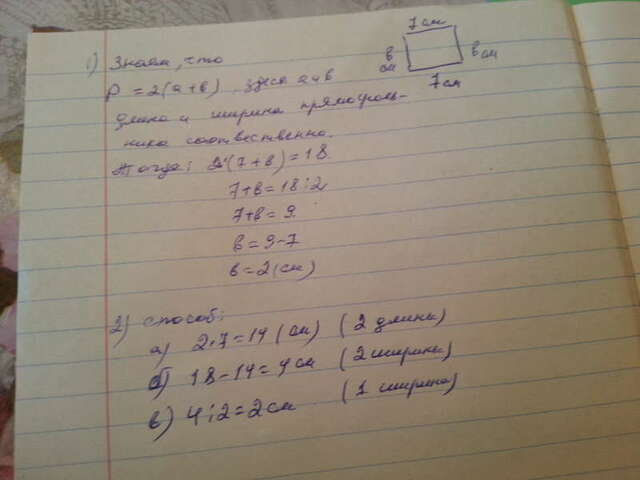 7 см
в см
в см
7 см
1) Знаем, что
P = 2(a+в), здесь a и в
длина и ширина прямоуголь-
ника соотвественно.
Тогда: 2·(7+в)=18
7+в=18:2
7+в=9.
в=9-7
в=2(см)
2) способ:
а) 2·7=14 (см) (2 длины)
б) 18-14=4 см (2 ширины)
в) 4:2=2 см (1 ширина)